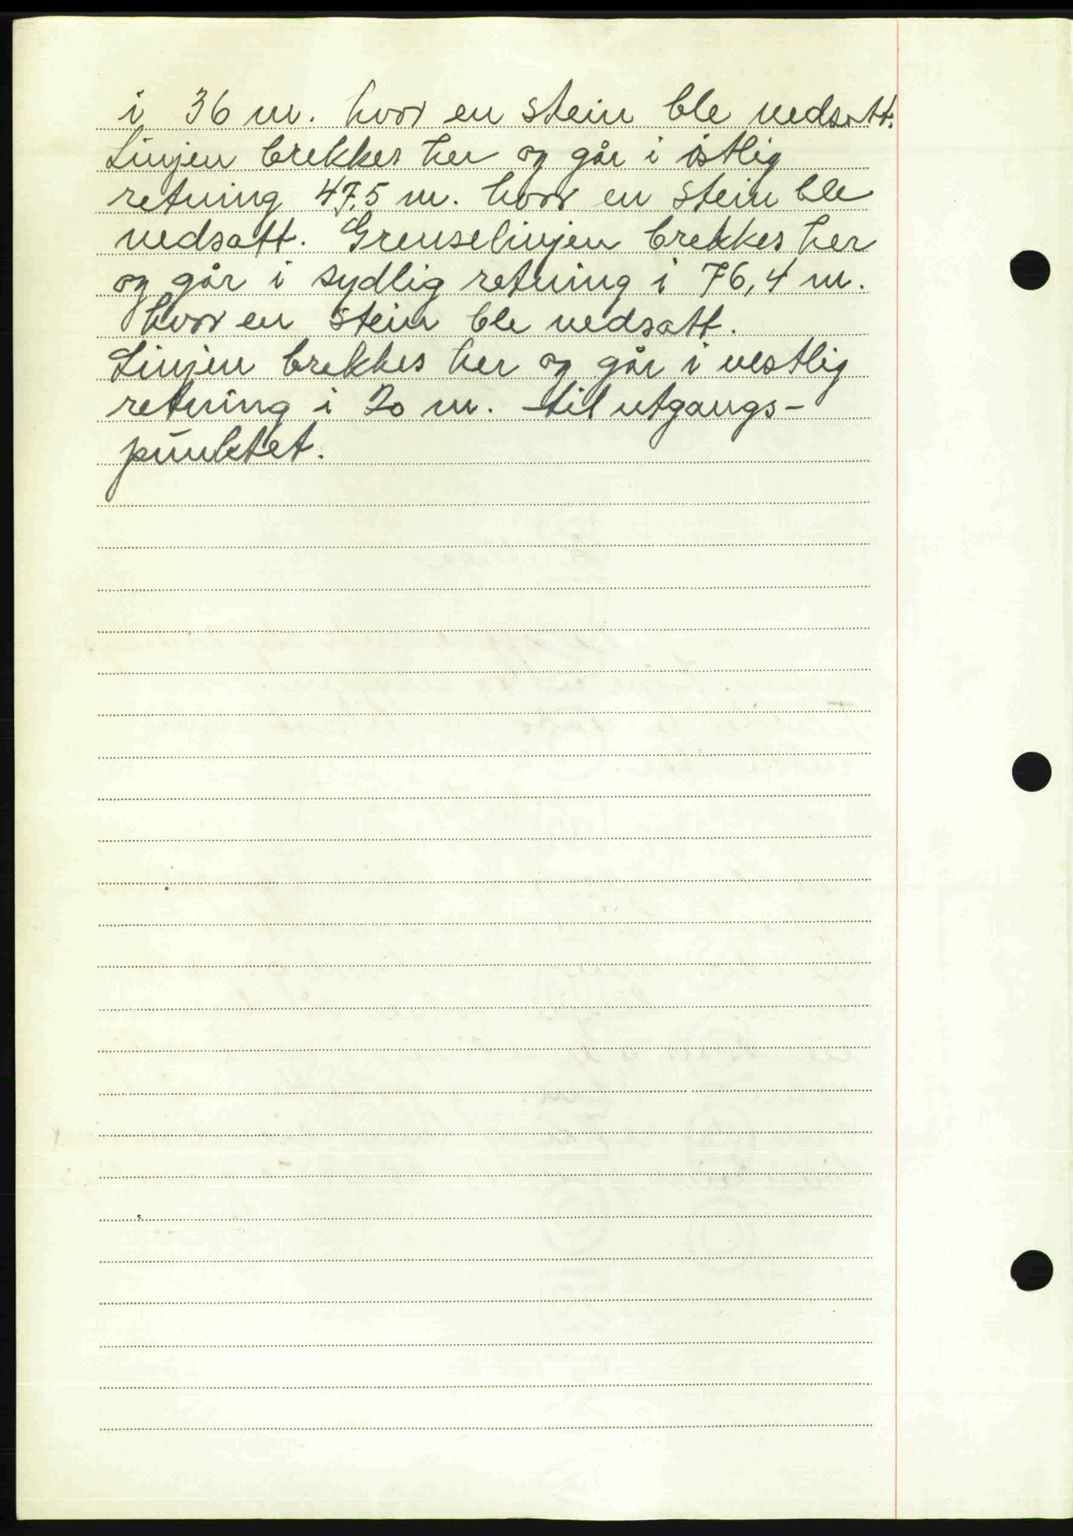 i 36 m. hvor en stein ble nedsatt.
Linjen brekkes her og går i østlig
retning 47,5 m. hvor en stein ble
nedsatt. Grenselinjen brekkes her
og går i sydlig retning i 76,4 m.
hvor en stein ble nedsatt.
Linjen brekkes her og går i vestlig
retning i 20 m. til utgangs-
punktet.